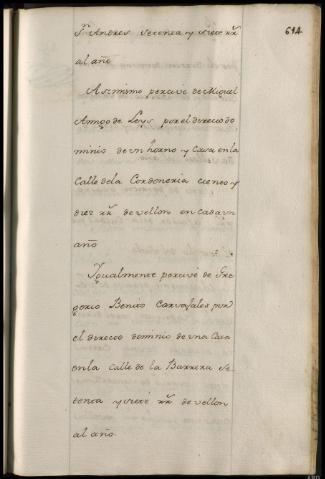 614
Sn. Andres setenta y siete rr.
al año
Asimismo percive de Miguel
Amigo de Leys por el directo do
minio de un horno y Casa en la
Calle de la Cordoneria ciento y
diez rr. de vellon en cada un
año
Igualmente percive de Gre
gorio Benito Carvajales por
el directo dominio de una Casa
en la calle de la Barrera se
tenta y siete rr. de vellon
al año.